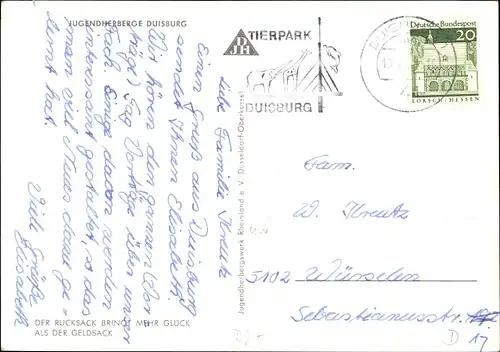 JUGENDHERBERGE DUISBURG
DJH
TIERPARK
DUISBURG
Deutsche Bundespost
20
LORSCH/HESSEN
Liebe Familie Kreutz
Einen Gruß aus Duisburg
sendet Ihnen Elisabeth.
Wir hören den ganzen (Vor-
träge) Tag Vorträge über unser
Fach. Einige davon werden
interessant gestaltet, so das
man viel Neues dazu ge-
lernt hat.
Viele Grüße
Elisabeth
Jugendherbergswerk Rheinland e. V. Düsseldorf-Oberkassel
Fam.
W. Kreutz
5102 Würselen
Sebastianusstr.
17
DER RUCKSACK BRINGT MEHR GLÜCK
ALS DER GELDSACK